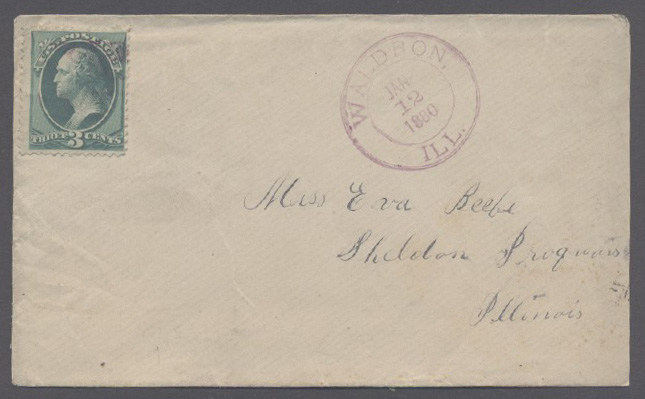 U.S. POSTAGE
THREE 3 CENTS
WALDRON,
JAN
12
1880
ILL.
Miss Eva Beebe
Sheldon Iroquois
Illinois